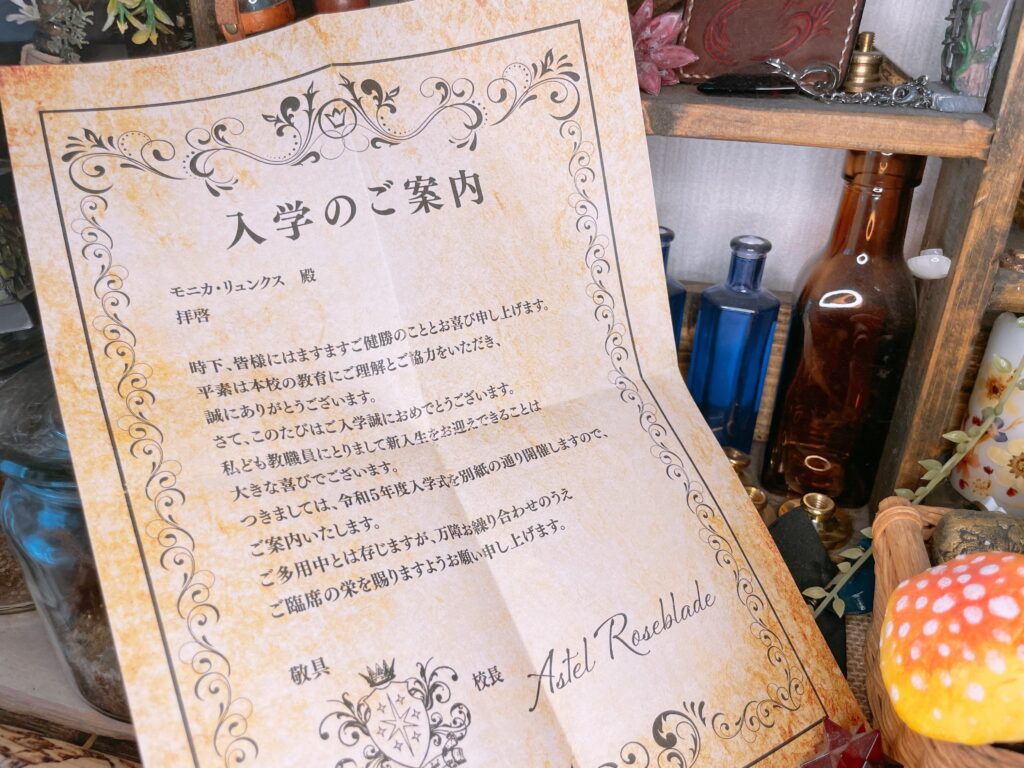 入学のご案内
モニカ・リュンクス　殿
拝啓
時下、皆様にはますますご健勝のこととお喜び申し上げます。
平素は本校の教育にご理解とご協力をいただき、
誠にありがとうございます。
さて、このたびはご入学誠におめでとうございます。
私ども教職員にとりまして新入生をお迎えできることは
大きな喜びでございます。
つきましては、令和5年度入学式を別紙の通り開催しますので、
ご案内いたします。
ご多用中とは存じますが、万障お繰り合わせのうえ
ご臨席の栄を賜りますようお願い申し上げます。
敬具
校長　Astel Roseblade